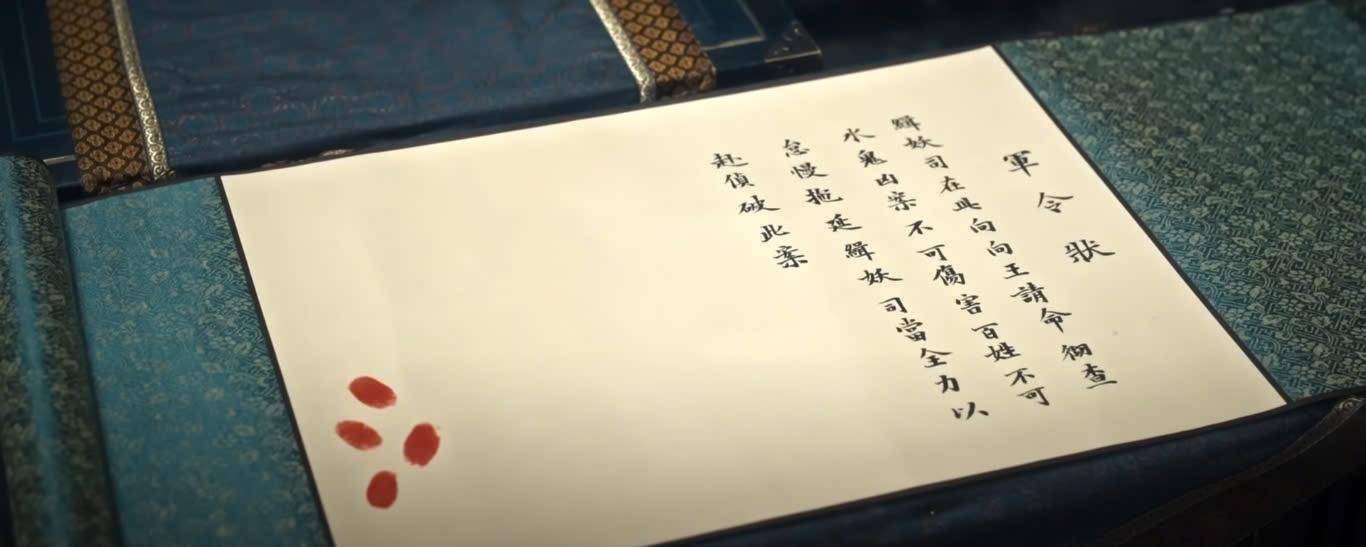 軍令狀
緝妖司在此向向王請命彻查
水鬼凶案不可傷害百姓不可
怠慢拖延緝妖司當全力以
赴偵破此案